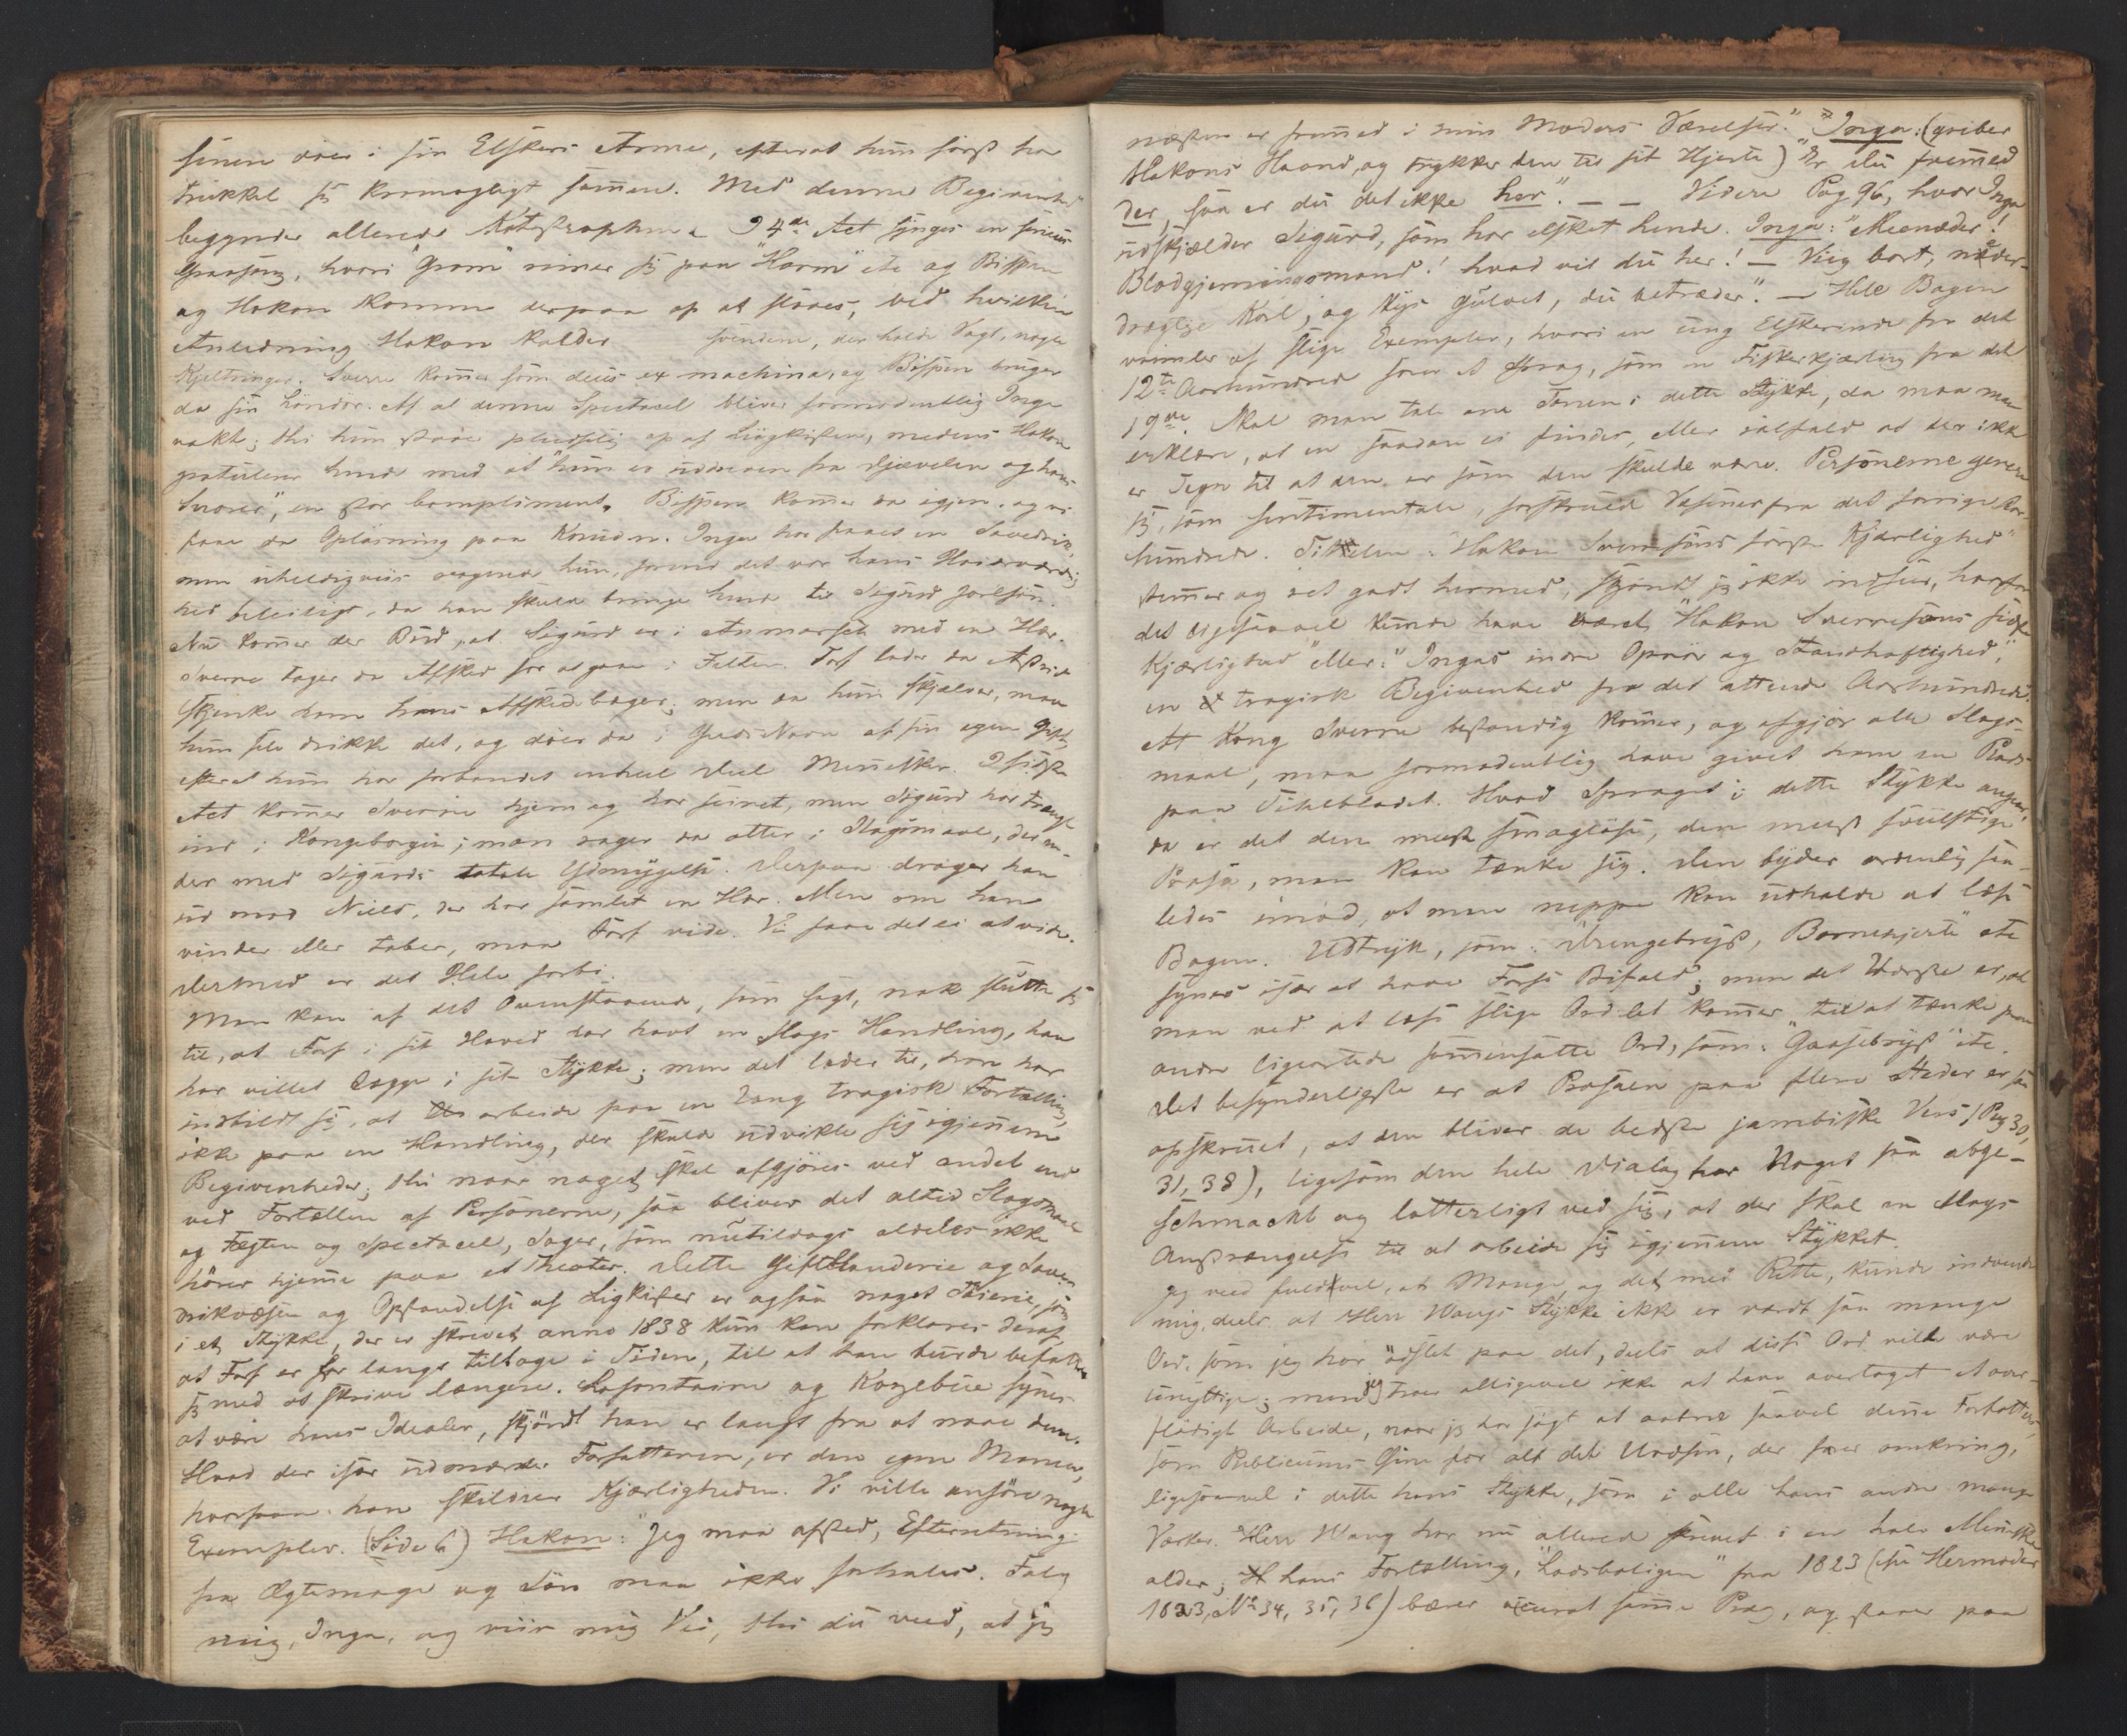 sinen döer i sin Elskers Arme, efterat hun først har
trukket sig krampagtigt sammen. Med denne Begivenhed
begynder allerede Katastrophen. I 4de Act synges en
Gravsang, hvori "Gram" rimer sig paa "Harm" etc og Bispen
og Hakon komme derpaa op at slaaes, ved hvilken
Anledning Hakon kalder svendene, der holde Vagt, nogle
Kjeltringer. Sverre kommer som deus ex machina, og Bispen bruger
da sin Løndør. Af al denne Spectacel bliver formodentlig Inga
vakt; thi hun staaer pludselig op af Liigkisten, medens Hakon
gratulerer hende med at "hun er udreven fra Djævelen og hans
Snarer", en stor Compliment. Bispen kommer da igjen, og vi
faae da Opløsning paa Knuden. Inga har faaet en Sovedrik,
men uheldigviis vaagnede hun, førend det var hans Høiærværdig-
hed beleiligt, da han skulde bringe hende til Sigurd Jarlsøn.
Nu kommer der Bud, at Sigurd er i Anmarsch med en Hær.
Sverre tager da Afsked for at gaae i Felten. Forf lader da Astrid
skjenke ham hans Afskedsbæger; men da hun skjælver, maa
hun selv drikke det, og döer da i Guds Navn af sin egen Gift,
efterat hun har forbandet endeel Deel Mennesker. I sidste
Act kommer Sverre hjem og har seiret, men Sigurd har trængt
ind i Kongeborgen; man rager da atter i Slagsmaal, der en-
der med Sigurds totale Ydmygelse. Derpaa drager han
ud mod Niels, der har samlet en Hær. Men om han
vinder eller taber, maa Forf vide. Vi faae det ei at vide.
Dermed er det Hele forbi.
Man kan af det Ovenstaaende, som sagt, nok slutte sig
til, at Forf i sit Hoved har havt en Slags Handling, han
har villet lægge i sit Stykke; men det lader til, han har
indbildt sig, at arbeide paa en lang tragisk Fortælling,
ikke paa en Handling, der skulde udvikle sig igjennem
Begivenheder; thi naar noget skal afgjöres ved andet end
ved Fortællen af Personerne, saa bliver det altid Slagsmaal
og Fægten og Spectacel, Sager, som nutildags aldeles ikke
hører hjemme paa et Theater. Dette Giftblanderie og Sove-
drikvæsen og Opstandelse af Ligkister er ogsaa noget Töierie, som
i et Stykke, der er skrevet anno 1838 kun kan forklares deraf,
at Forf er for langt tilbage i Tiden, til at han burde befatte
sig med at skrive længere. Lafontaine og Kozebue synes
at være hans Idealer, skjöndt han er langt fra at naae dem.
Hvad der især udmærker Forfatteren, er den egne Maneer,
hvorpaa han skildrer Kjærligheden. Vi ville anföre nogle
Exempler. (Side 6) Hakon: "Jeg maa afsted, Efterretning
fra Ægtemage og Sön maa ikke forhales. Fölg
mig, Inga, og viis mig Vei, thi du veed, at jeg
næsten er fremmed i min Moders Værelser." "Inga: (griber
Hakons Haand, og trykker den til sit Hjerte) "Er du fremmed
der, saa er du det ikke her". — — Videre Pag 96, hvor Inga
udskjælder Sigurd, som har elsket hende. Inga: "Meeneder!
Blodgjerningsmand! hvad vil du her! — Viig bort, neder-
drægtige Karl, og kys Gulvet, du betræder". — Hele Bogen
vrimler af slige Exempler, hvori en ung Elskerinde fra det
12te Aarhundrede förer et Sprog, som en Fiskerkjærling fra det
19de. Skal man tale om Tonen i dette Stykke, da maa man
erklære, at en saadan ei findes, eller ialfald at der ikke
er Tegn til at den er som den skulde være. Personerne gerere
sig, som sentimentale, forskruede Væsener fra det forrige Aar-
hundrede. Titelen: "Hakon Sverresöns förste Kjærlighed"
stemmer og ret godt hermed, skjöndt jeg ikke indseer, hvorfor
det ligesaavel kunde have været, "Hakon Sverresöns sidste
Kjærlighed" eller: "Ingas indre Oprör og Standhaftighed,"
en tragisk Begivenhed fra det attende Aarhundrede.
At Kong Sverre bestandig kommer, og afgjör alle Slags-
maal, maa formodentlig have givet ham en Plads
paa Titelbladet. Hvad Sproget i dette Stykke angaaer,
da er det den meest smaglöse, den meest svulstige
Prosa, man kan tænke sig. Den byder ordentlig saa-
ledes imod, at man neppe kan udholde at læse
Bogen. Udtryk, som: "Drengebryst, Barnehjerte" etc
synes især at have Forfs Bifald; men det Værste er, at
man ved at læse slige Ord let kommer til at tænke paa
andre ligeartede sammensatte Ord, som: "Gaasebryst" etc.
Det besynderligste er at Prosaen paa flere Steder er saa
opskruet, at den bliver de bedste jambiske Vers (Pag 30,
31, 38), ligesom den hele Dialog har Noget saa abge-
schmackt og latterligt ved sig, at der skal en Slags
Anstrængelse til at arbeide sig igjennem Stykket.
Jeg veed fuldtvel, at Mange, og det med Rette, kunde indvende
mig, deels at Herr Wangs Stykke ikke er værdt saa mange
Ord, som jeg har ödslet paa det, deels at disse Ord ville være
unyttige; men jeg troer alligevel ikke at have overtaget et over-
flödigt Arbeide, naar jeg har sögt at aabne saavel denne Forfatters
som Publicums Öine for alt det Usselhed, der farer omkring,
ligesaavel i dette hans Stykke, som i alle hans andre mange
Værker. Herr Wang har nu allerede skrevet i en halv Menneske-
alder; hans Fortælling, "Lodsboligen" fra 1823 (see Hermoder
1823, No 34, 35, 36) bærer accurat samme Præg, og staaer paa